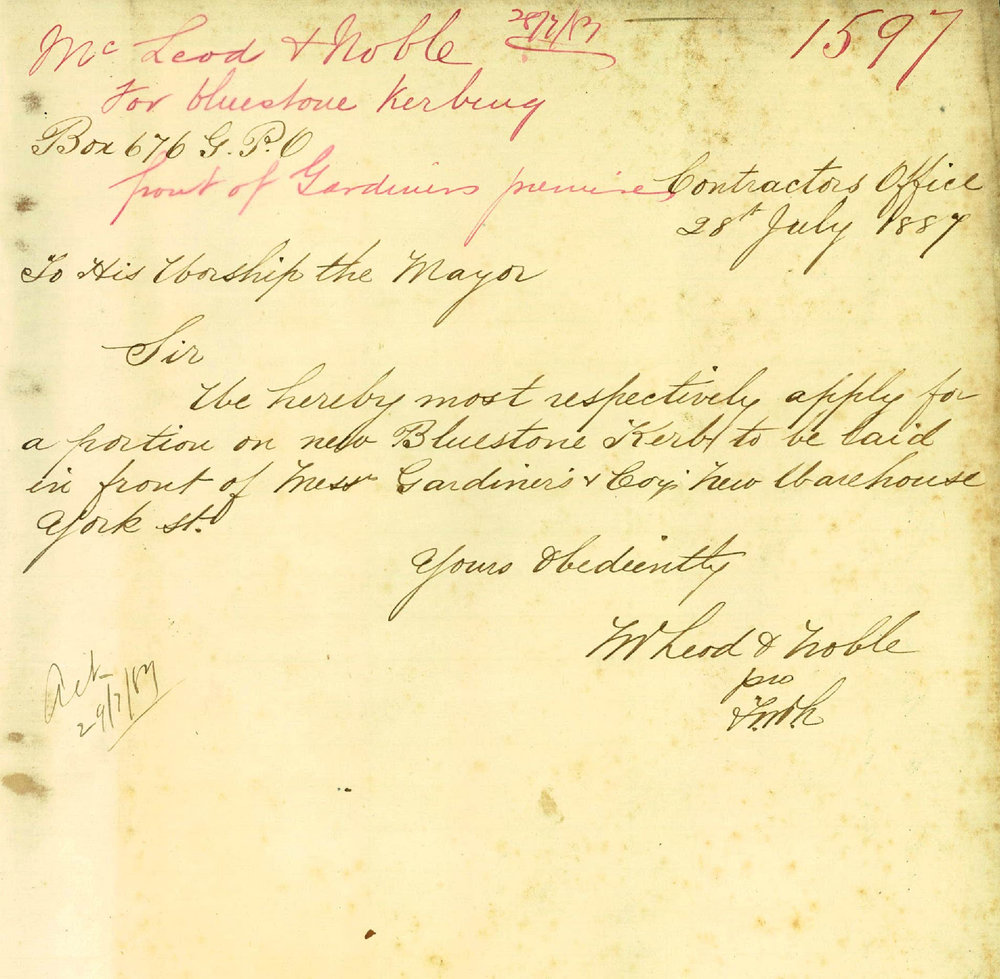 Mc Leod & Noble 28/7/87 1597
For bluestone Kerbing
Box 676 G.P.O
front of Gardiners premises
Contractors Office
28th July 1887
To His Worship the Mayor
Sir
We hereby most respectively apply for
a portion on new Bluestone Kerb to be laid
in front of Messrs Gardiner's & Coy's New Warehouse
York st.
Yours Obediently
McLeod & Noble
pro
Ack
29/7/87